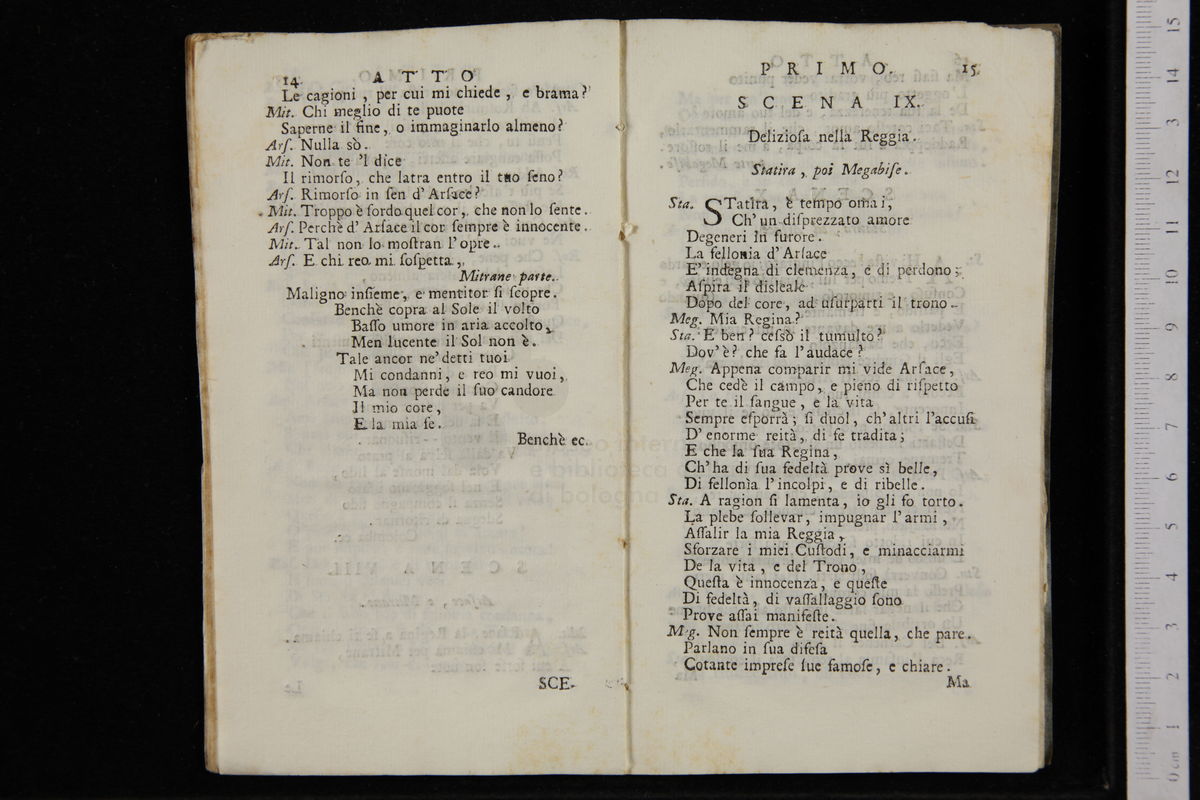 14. A T T O
Le cagioni , per cui mi chiede , e brama?
Mit. Chi meglio di te puote
Saperne il fine, o immaginarlo almeno?
Arſ. Nulla sò.
Mit. Non te 'l dice
Il rimorſo, che latra entro il tuo ſeno?
Arſ. Rimorſo in ſen d' Arſace?
Mit. Troppo è ſordo quel cor, che non lo ſente.
Arſ. Perchè d' Arſace il cor ſempre è innocente.
Mit. Tal non lo moſtran l' opre.
Arſ. E chi reo mi ſoſpetta,
Mitrane parte.
Maligno inſieme, e mentitor ſi ſcopre.
Benchè copra al Sole il volto
Baſſo umore in aria accolto,
Men lucente il Sol non è.
Tale ancor ne' detti tuoi
Mi condanni, e reo mi vuoi,
Ma non perde il ſuo candore
Il mio core,
E la mia fe.
Benchè ec.
SCE-
P R I M O. 15.
S C E N A IX.
Delizioſa nella Reggia.
Statira , poi Megabiſe.
Sta. STatira, è tempo omai,
Ch' un diſprezzato amore
Degeneri in furore.
La fellonia d' Arſace
E' indegna di clemenza, e di perdono;
Aſpira il disleale
Dopo del core, ad uſurparti il trono.
Meg. Mia Regina?
Sta. E ben? ceſsò il tumulto?
Dov' è? che fa l' audace?
Meg. Appena comparir mi vide Arſace,
Che cedè il campo, e pieno di riſpetto
Per te il ſangue, e la vita
Sempre eſporrà; ſi duol, ch' altri l' accuſi
D' enorme reità, di fe tradita;
E che la ſua Regina,
Ch' ha di ſua fedeltà prove sì belle,
Di fellonìa l' incolpi, e di ribelle.
Sta. A ragion ſi lamenta, io gli fo torto.
La plebe ſollevar, impugnar l' armi,
Aſſalir la mia Reggia,
Sforzare i miei Cuſtodi, e minacciarmi
De la vita, e del Trono,
Queſta è innocenza, e queſte
Di fedeltà, di vaſſallaggio ſono
Prove aſſai manifeſte.
Meg. Non ſempre è reità quella, che pare.
Parlano in ſua difeſa
Cotante impreſe ſue famoſe, e chiare.
Ma